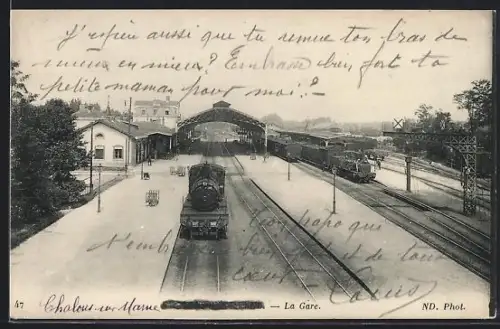 J'espère aussi que tu remue ton bras de
mieux en mieux ? Embrasse bien fort ta
petite maman pour moi ?
Ton papa qui
t'embrasse de tout
cœur
Louis
47
Chalons-sur-Marne
— La Gare.
ND. Phot.